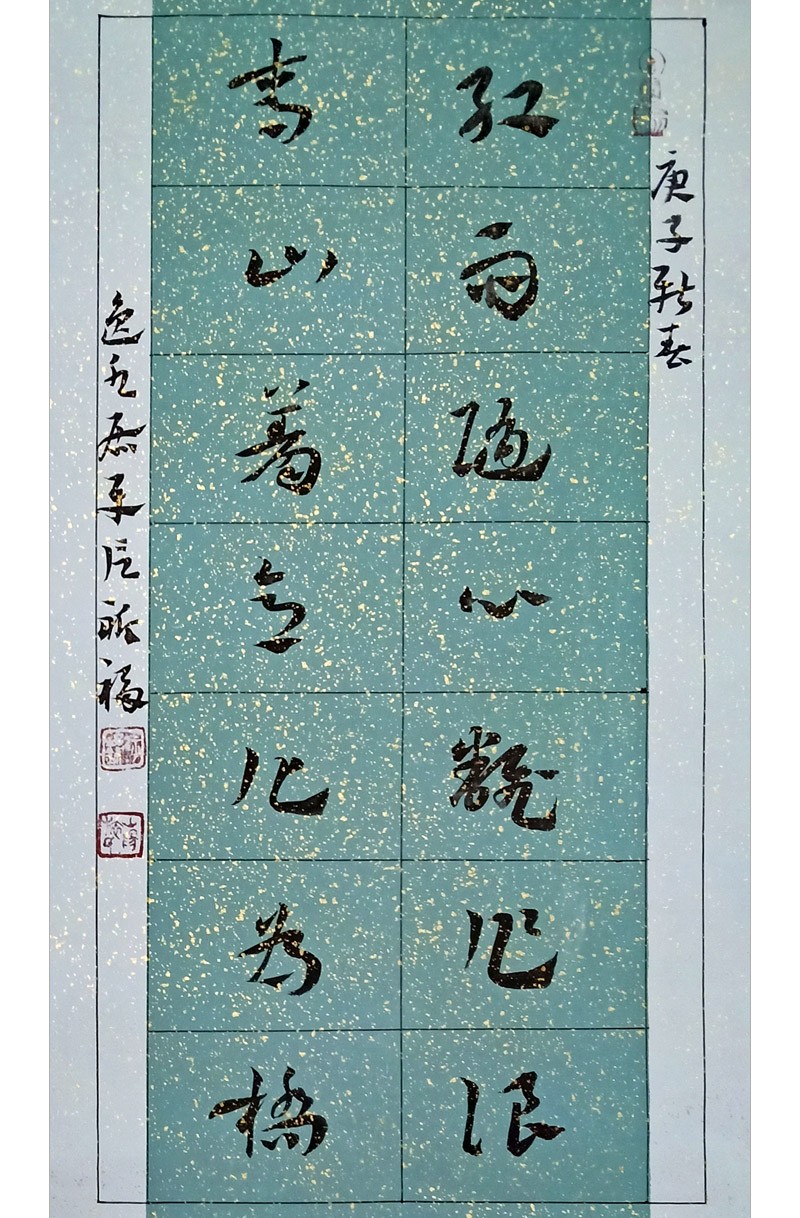 庚子新春
红雨随心翻作浪
青山着意化为橋
逸居平祈福